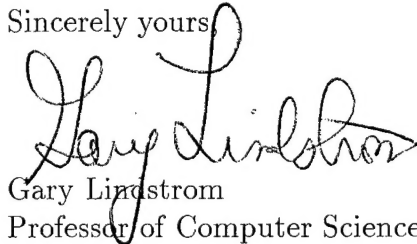 Sincerely yours,
Gary Lindstrom
Gary Lindstrom
Professor of Computer Science